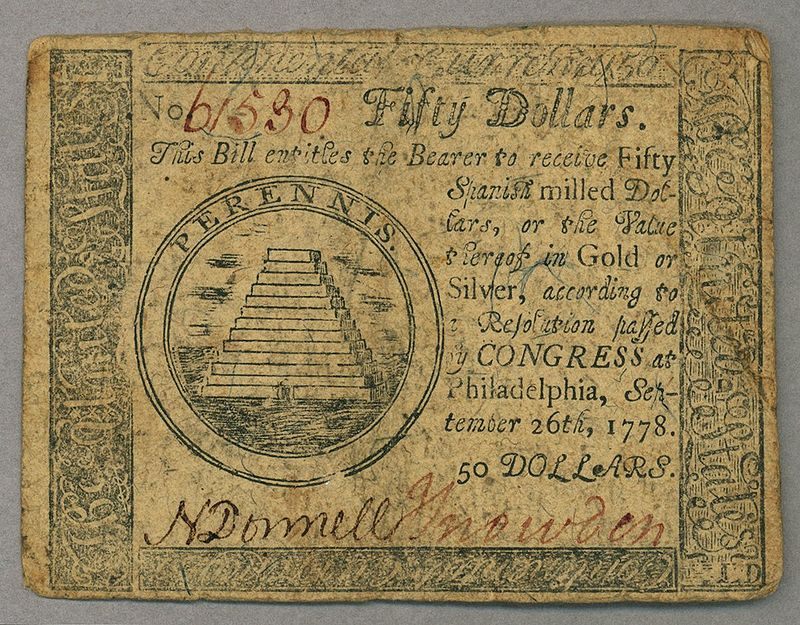 Continental Currency
No 61530 Fifty Dollars.
This Bill entitles the Bearer to receive Fifty
Spanish milled Dol-
lars, or the Value
thereof in Gold or
Silver, according to
a Resolution passed
by CONGRESS at
Philadelphia, Sep-
tember 26th, 1778.
50 DOLLARS.
PERENNIS.
N Donnell
Snowden